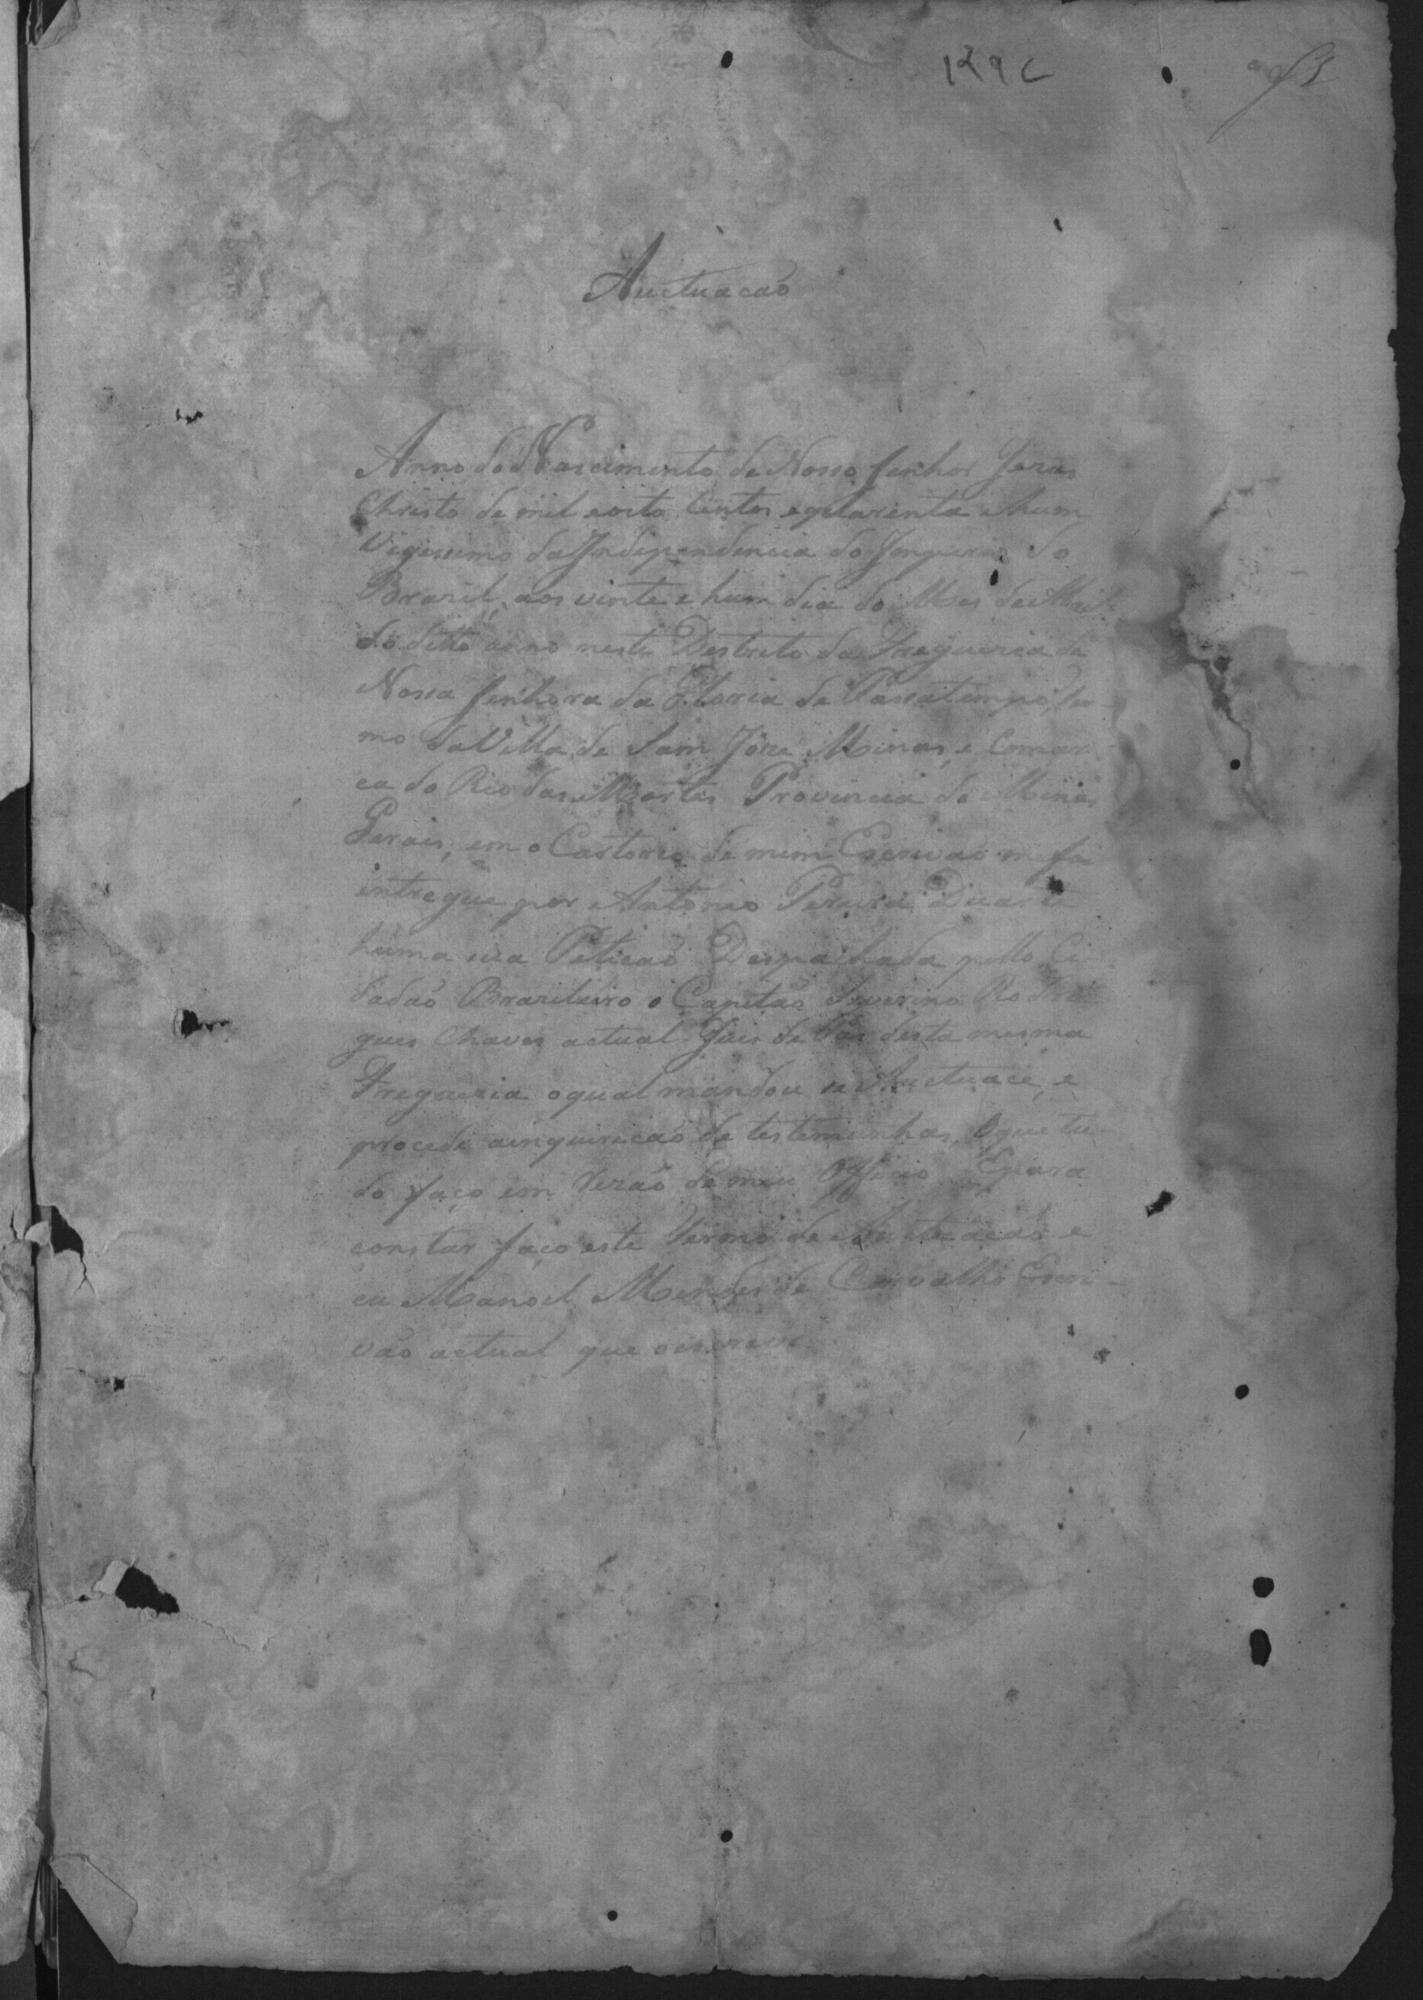 Auctuacão
Anno do Nascimento de Nosso Senhor Jezus
Christo de mil e oito centos e quarenta e hum
Vigessimo da Independencia do Imperio do
Brazil, aos vinte e hum dia do Mes de
do ditto anno neste Destrito da Freguezia de
Nossa Senhora da Gloria de Passatempo, ter-
mo da Villa de Sam Joze Minas, e Comar
ca do Rio das Mortes Provincia de Minas
Gerais, em o Cartorio de mim Escrivão me foi
intregue por Antonio Pereira Duarte
huma sua Peticão Despachada pello Ci
dadão Brazileiro o Capitão Severino Rodri
gues Chaves actual Juis de Pas desta mesma
Freguezia o qual mandou se Auctuace, e
procede a inquiricão de testemunhas, O que tu-
do faço em rezão de meu Officio E para
constar faço este Termo de Auctuacão e
eu Manoel Mendes de Carvalho Escri-
vão actual que o escrevi